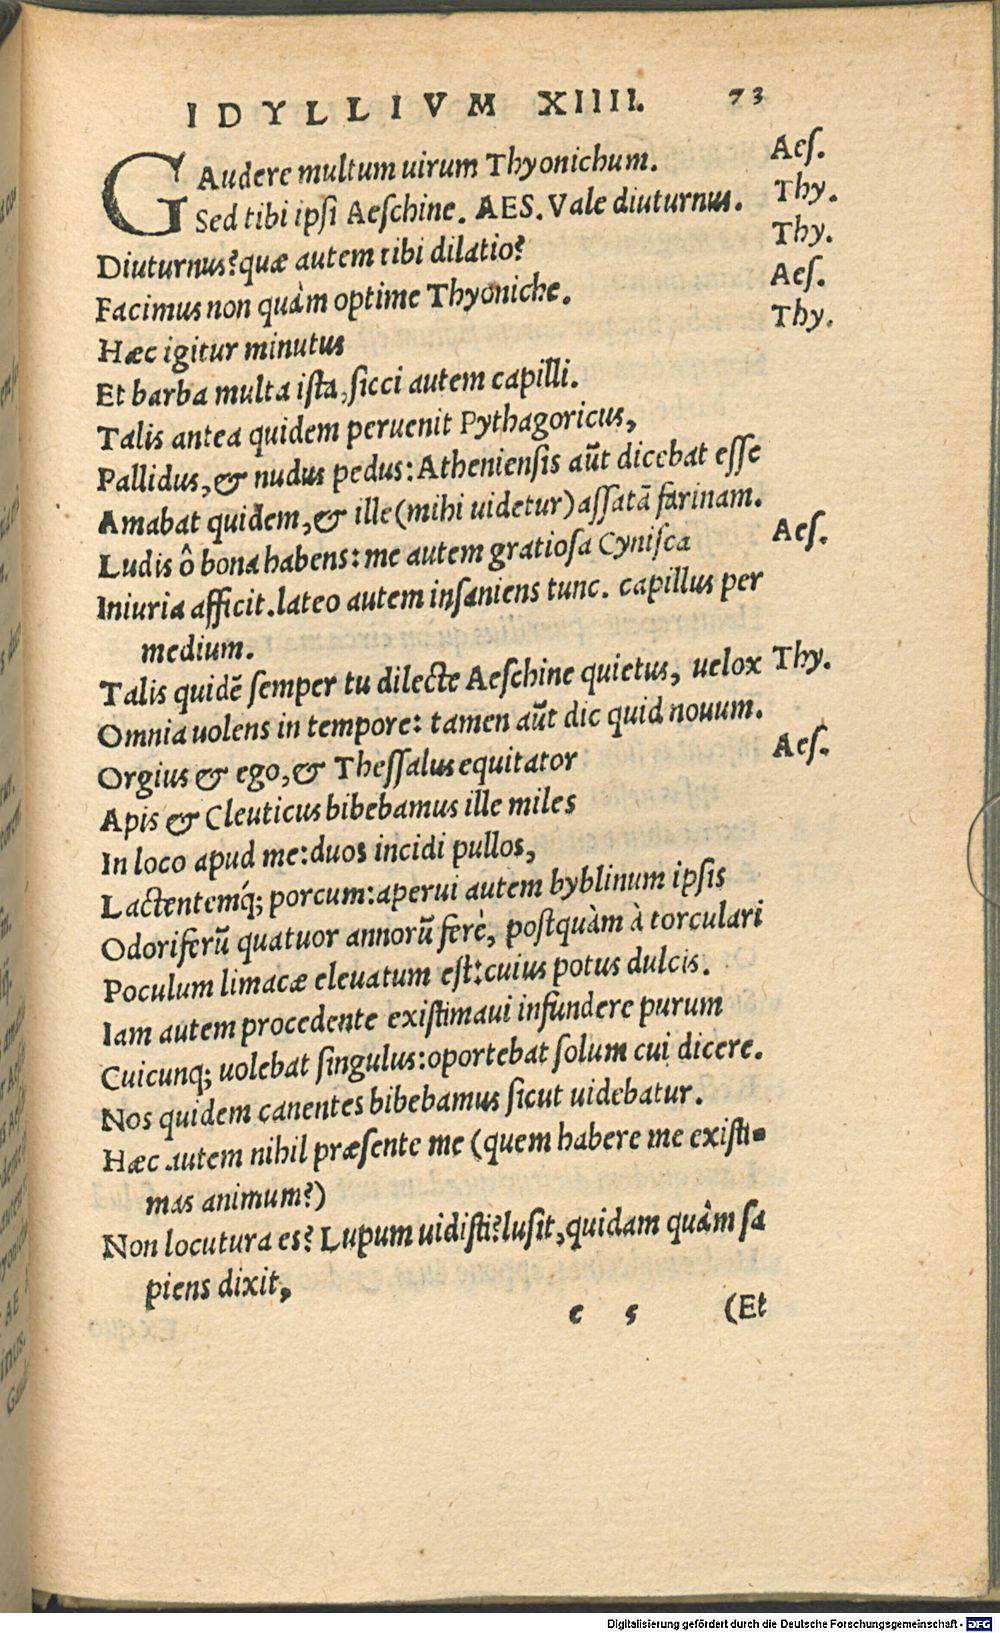 IDYLLIVM XIIII. 73
GAudere multum uirum Thyonichum. Aeſ.
Sed tibi ipſi Aeſchine. AES. Vale diuturnus. Thy.
Diuturnus? quæ autem tibi dilatio? Thy.
Facimus non quàm optime Thyoniche. Aeſ.
Hæc igitur minutus Thy.
Et barba multa iſta, ſicci autem capilli.
Talis antea quidem peruenit Pythagoricus,
Pallidus, & nudus pedus: Athenienſis aūt dicebat eſſe
Amabat quidem, & ille (mihi uidetur) aſſatā farinam.
Ludis ô bona habens: me autem gratioſa Cyniſca Aeſ.
Iniuria afficit. lateo autem inſaniens tunc. capillus per
medium.
Talis quidē ſemper tu dilecte Aeſchine quietus, uelox Thy.
Omnia uolens in tempore: tamen aūt dic quid nouum.
Orgius & ego, & Theſſalus equitator Aeſ.
Apis & Cleuticus bibebamus ille miles
In loco apud me: duos incidi pullos,
Lactentemq́; porcum: aperui autem byblinum ipſis
Odoriferū quatuor annorū ferè, poſtquàm à torculari
Poculum limacæ eleuatum eſt: cuius potus dulcis.
Iam autem procedente exiſtimaui infundere purum
Cuicunq; uolebat ſingulus: oportebat ſolum cui dicere.
Nos quidem canentes bibebamus ſicut uidebatur.
Hæc autem nihil præſente me (quem habere me exiſti-
mas animum?)
Non locutura es? Lupum uidiſti? luſit, quidam quâm ſa
piens dixit,
c 5 (Et
Digitalisierung gefördert durch die Deutsche Forschungsgemeinschaft - DFG